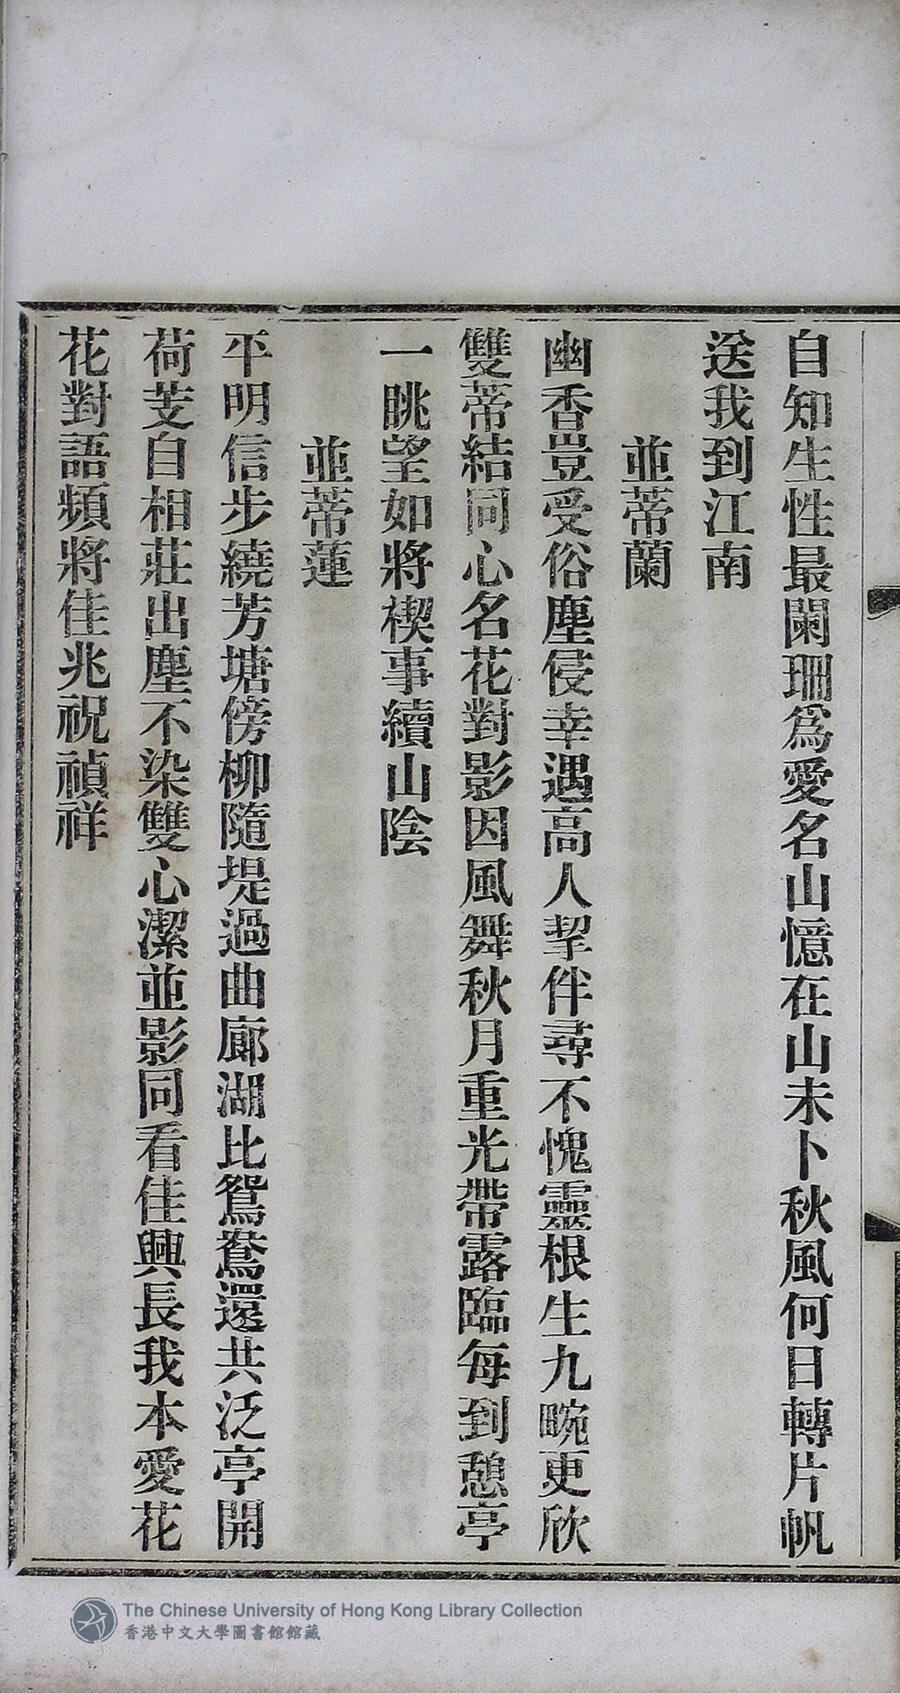 自知生性最闌珊爲愛名山憶在山未卜秋風何日轉片帆
送我到江南
並蒂蘭
幽香豈受俗塵侵幸遇高人挈伴尋不愧靈根生九畹更欣
雙蒂結同心名花對影因風舞秋月重光帶露臨每到憩亭
一眺望如將禊事續山陰
並蒂蓮
平明信步繞芳塘傍柳隨堤過曲廊湖比鴛鴦還共泛亭開
荷芰自相莊出塵不染雙心潔並影同看佳興長我本愛花
花對語頻將佳兆祝禎祥
The Chinese University of Hong Kong Library Collection
香港中文大學圖書館館藏